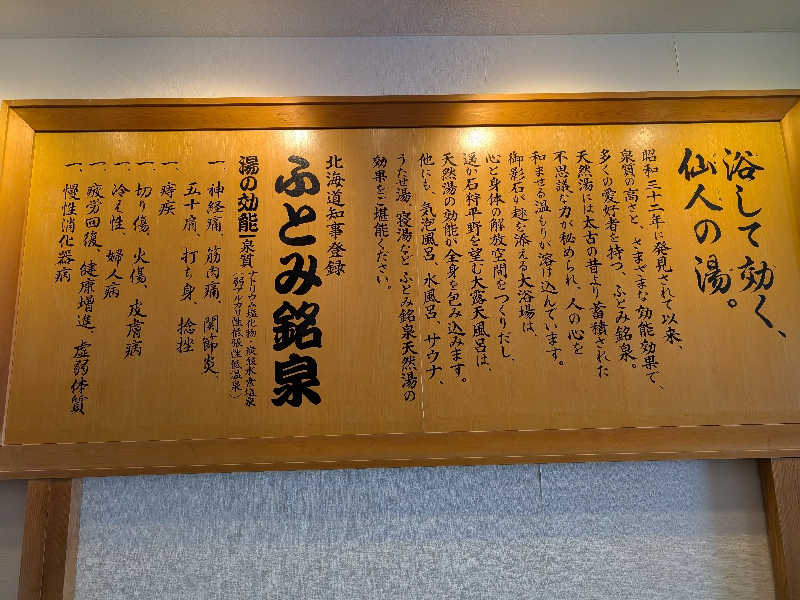 浴して効く、
仙人の湯。
昭和三十二年に発見されて以来、
泉質の高さと、さまざまな効能効果で、
多くの愛好者を持つ、ふとみ銘泉。
天然湯には太古の昔より蓄積された
不思議な力が秘められ、人の心を
和ませる温もりが溶け込んでいます。
御影石が趣を添える大浴場は
心と身体の解放空間をつくりだし、
遥か石狩平野を望む大露天風呂は、
天然湯の効能が全身を包み込みます。
他にも、気泡風呂、水風呂、サウナ、
うたせ湯、寝湯など、ふとみ銘泉天然湯の
効果をご堪能ください。
北海道知事登録
ふとみ銘泉
湯の効能―泉質 ナトリウム塩化物・炭酸水素塩泉
(弱アルカリ性低張性低温泉)
一、神経痛、筋肉痛、関節炎、
五十肩、打ち身、捻挫
一、痔疾
一、切り傷、火傷、皮膚病
一、冷え性、婦人病
一、疲労回復、健康増進、虚弱体質
一、慢性消化器病